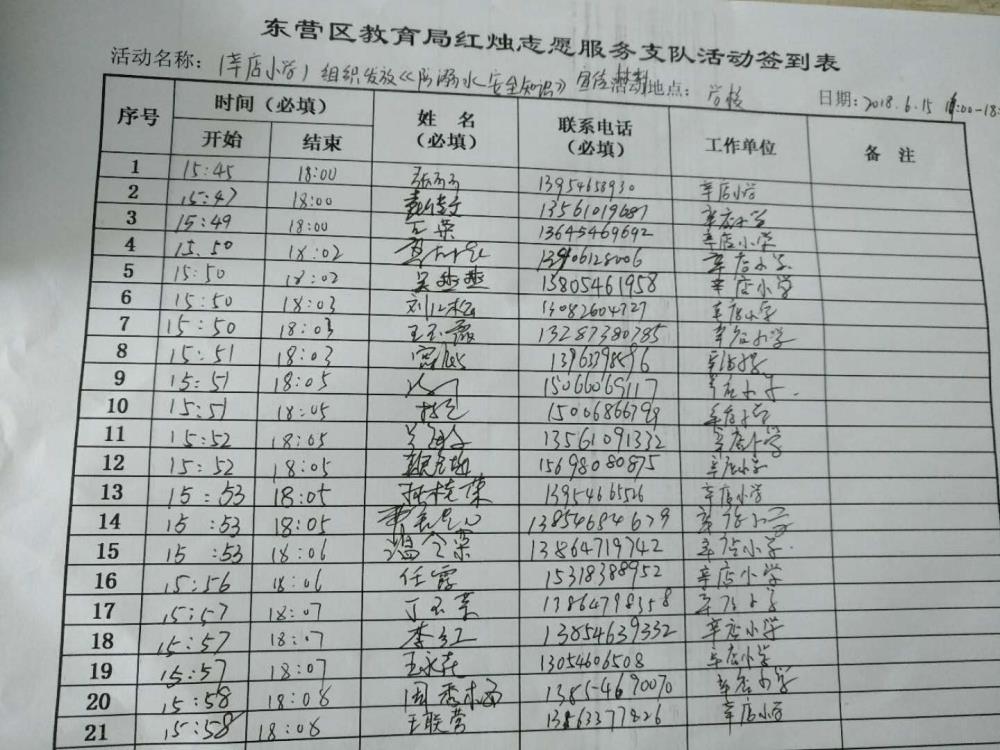 东营区教育局红烛志愿服务支队活动签到表
活动名称：(辛店小学)组织发放《防溺水安全知识》宣传 活动地点：学校 日期：2018.6.15
序号 时间（必填） 姓名（必填） 联系电话（必填） 工作单位 备注
开始 结束
1 15:45 18:00 13954658930 辛店小学
2 15:47 18:00 13561019687 辛店小学
3 15:49 18:00 王荣 13645469692 辛店小学
4 15:50 18:02 13906128006 辛店小学
5 15:50 18:02 吴燕燕 13805461958 辛店小学
6 15:50 18:03 刘红松 13082604727 辛店小学
7 15:50 18:03 王玉霞 13287380785 辛店小学
8 15:51 18:03 辛店小学
9 15:51 18:05 15066069117 辛店小学
10 15:51 18:05 15006866799 辛店小学
11 15:52 18:05 13561091332 辛店小学
12 15:52 18:05 15698080875 辛店小学
13 15:53 18:05 张桂荣 1395466526 辛店小学
14 15:53 18:05 13854684679 辛店小学
15 15:53 18:06 温金荣 13864719742 辛店小学
16 15:56 18:06 任霞 15318388952 辛店小学
17 15:57 18:07 丁玉荣 13864798358 辛店小学
18 15:57 18:07 李红 13854639332 辛店小学
19 15:57 18:07 王永花 13054606508 辛店小学
20 15:58 18:08 周秀梅 13854690070 辛店小学
21 15:58 18:08 王联营 13863377826 辛店小学